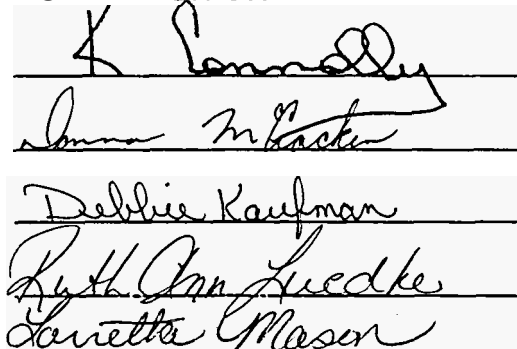 K Connolly
Donna McCracken
Debbie Kaufman
Ruth Ann Luedke
Lorretta Mason